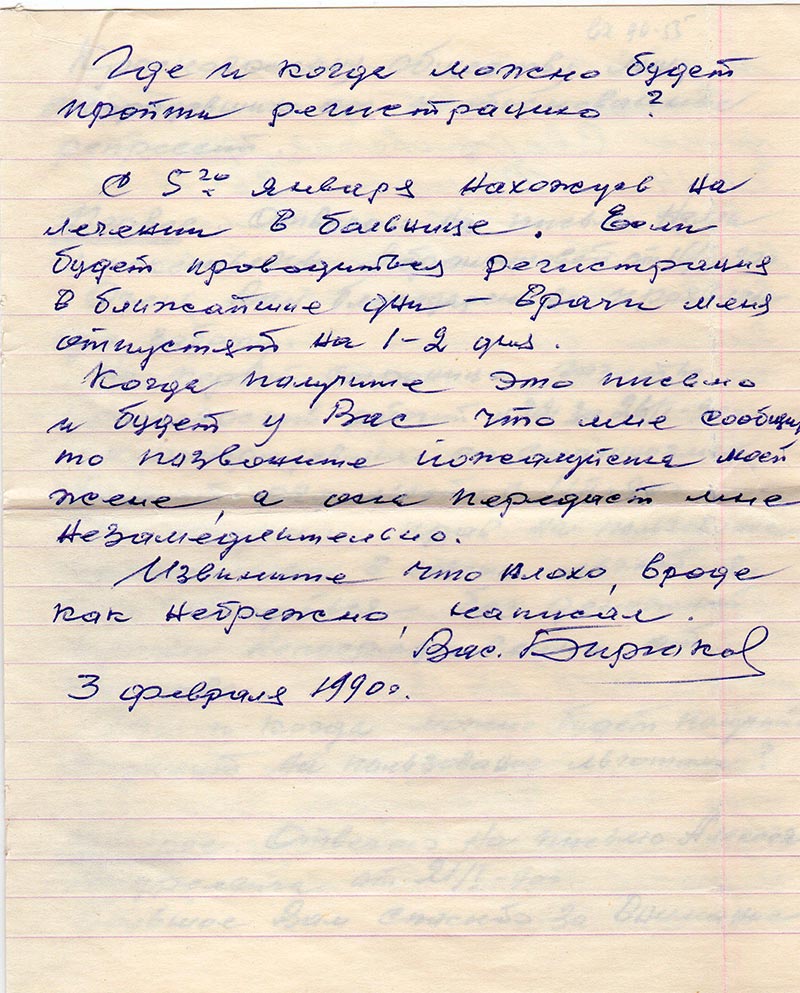 Где и когда можно будет
пройти регистрацию?
С 5го января нахожусь на
лечении в больнице. Если
будет проводиться регистрация
в ближайшие дни — врачи меня
отпустят на 1-2 дня.
Когда получите это письмо
и будет у Вас что мне сообщить
то позвоните пожалуйста моей
жене, а она передаст мне
незамедлительно.
Извините что плохо, вроде
как небрежно, написал.
Вас. Бирюков
3 февраля 1990г.